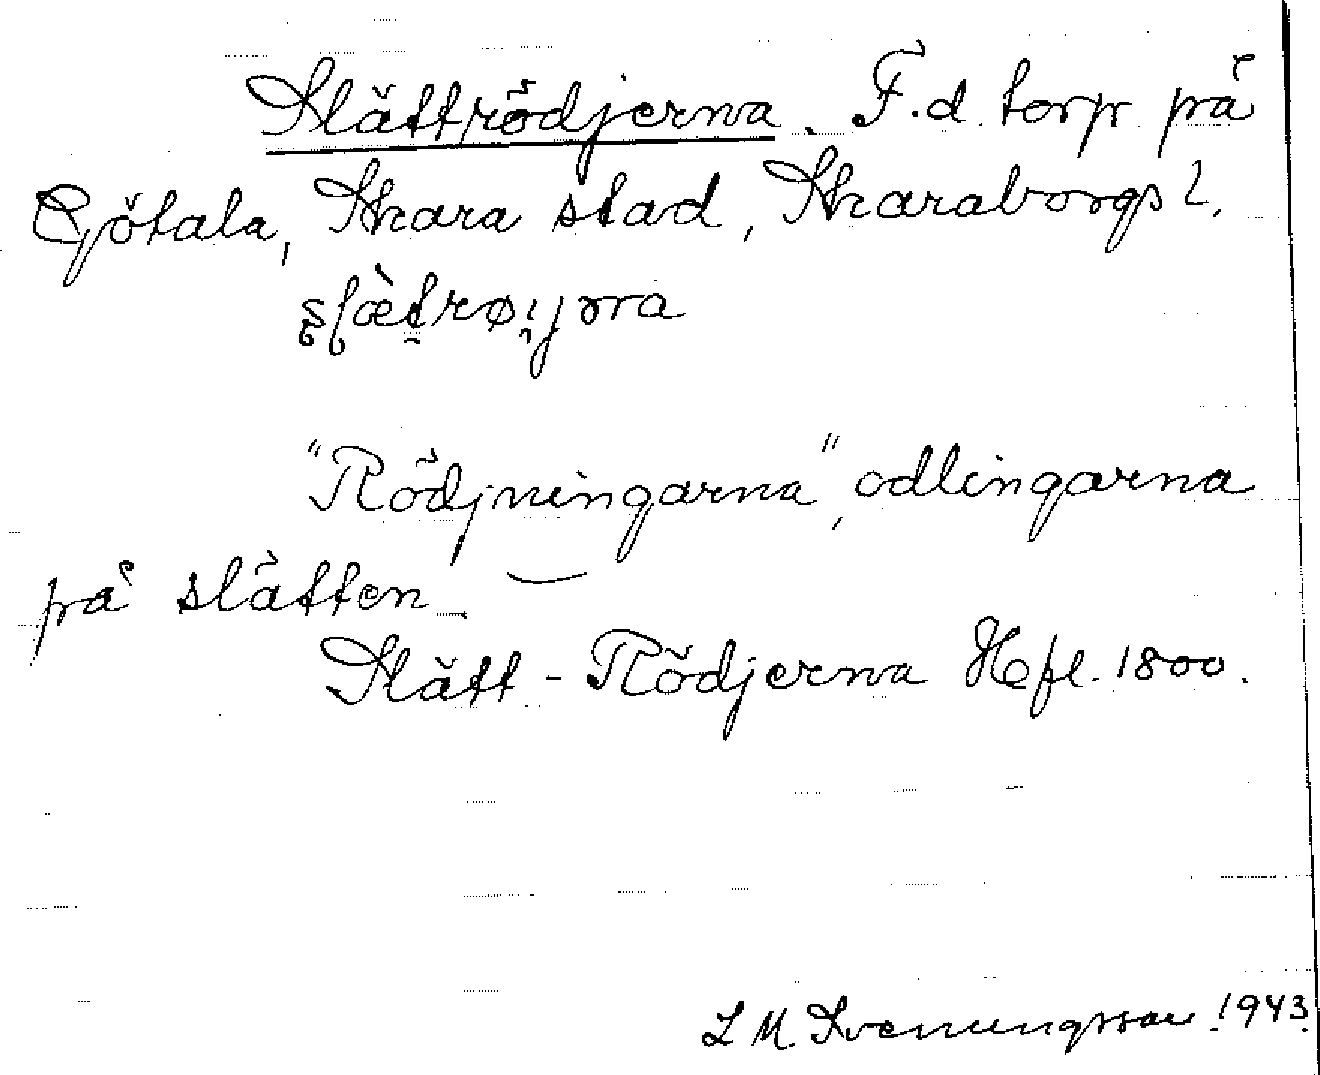 Slättrödjerna. F.d. torp på
Götala, Skara stad, Skaraborgs l.
"Rödjningarna", odlingarna
på slätten
Slätt-Rödjerna Hfl. 1800.
L M. Svenungsson 1943